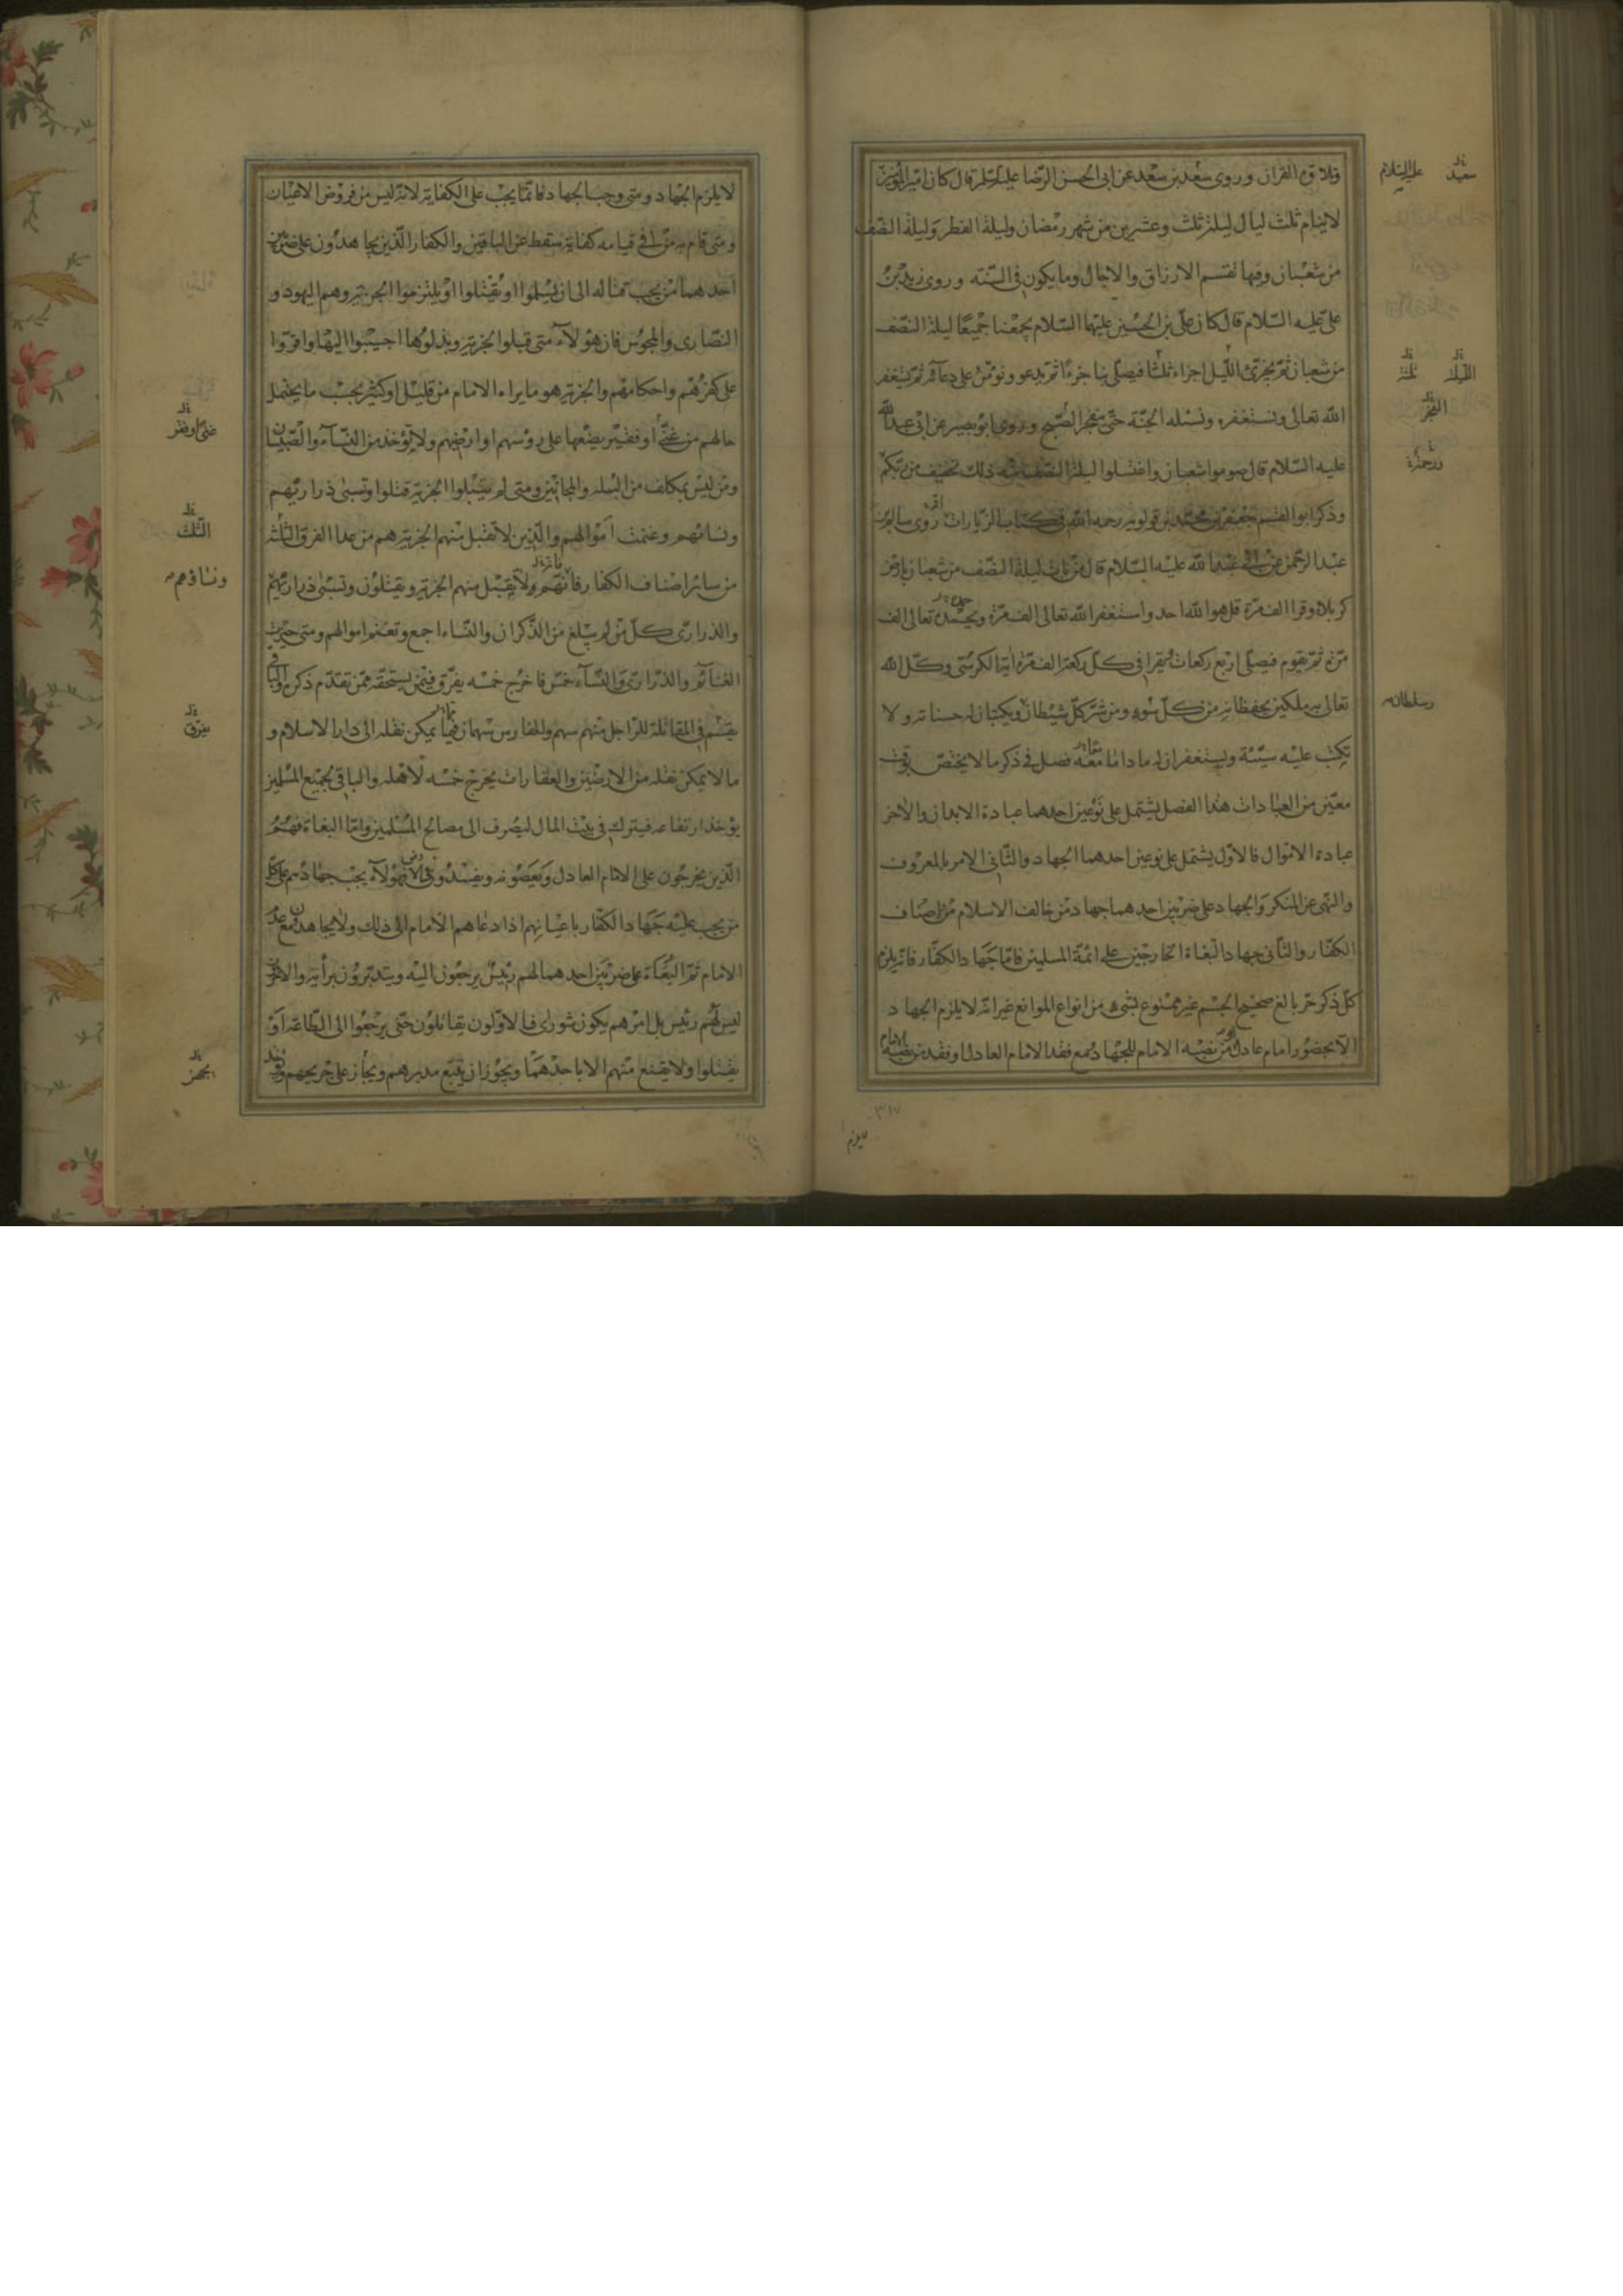 وتلاوة القران وروى سعد بن سعد عن ابى الحسن الرضا عليه السلم قال كان امير المؤمنين
لاينام ثلث ليال ليلة ثلث وعشرين من شهر رمضان وليلة الفطر وليلة النصف
من شعبان وفيها تقسم الارزاق والاجال وما يكون فى السنة وروى زيد بن
على عليه السلام قال كان على بن الحسين عليهما السلام يجمعنا جميعا ليلة النصف
من شعبان ثم يجزئ الليل اجزاء ثلثا فيصلى بنا جزءا ثم يدعو ونؤمن على دعائه ثم يستغفر
الله تعالى ونستغفره ونسئله الجنة حتى ينفجر الصبح وروى ابو بصير عن ابى عبد الله
عليه السلام قال صوموا شعبان واغتسلوا ليلة النصف منه ذلك تخفيف من ربكم
وذكر ابو القسم جعفر بن محمد بن قولويه رحمه الله فى كتاب الزيارات روى سالم بن
عبد الرحمن عن ابى عبد الله عليه السلام قال من بات ليلة النصف من شعبان بارض
كربلا وقرا الف مرة قل هو الله احد واستغفر الله تعالى الف مرة ويحمده تعالى الف
مرة ثم يقوم فيصلى اربع ركعات يقرا فى كل ركعة الف مرة اية الكرسى وكل الله
تعالى به ملكين يحفظانه من كل سوء ومن شر كل شيطان ويكتبان له حسناته ولا
تكتب عليه سيئة ويستغفران له ما داما معه فصل فى ذكر ما لا يختص بوقت
معين من العبادات هذا الفصل يشتمل على نوعين احدهما عبادة الابدان والاخر
عبادة الاموال فالاول يشتمل على نوعين احدهما الجهاد والثانى الامر بالمعروف
والنهى عن المنكر والجهاد على ضربين احدهما جهاد من خالف الاسلام من اصناف
الكفار والثانى جهاد البغاة الخارجين على ائمة المسلمين فاما جهاد الكفار فانه يلزم
كل ذكر حر بالغ صحيح الجسم غير ممنوع بشىء من انواع الموانع غير انه لا يلزم الجهاد
الا بحضور امام عادل او من نصبه الامام للجهاد ومع فقد الامام العادل او فقد من نصبه الامام
سعيد عليه السلام
الليلة ثلثة
الفجر
ورحمة
وسلطان
لا يلزم
٣١٧
لا يلزم الجهاد ومتى وجب الجهاد فانما يجب على الكفاية لانه ليس من فروض الاعيان
ومتى قام به من فى قيامه كفاية سقط عن الباقين والكفار الذين يجاهدون على ضربين
احدهما من يجب قتاله الى ان يسلموا او يقتلوا او يلتزموا الجزية وهم اليهود و
النصارى والمجوس فان هؤلاء متى قبلوا الجزية وبذلوها اجيبوا اليها واقروا
على كفرهم واحكامهم والجزية هو ما يراه الامام من قليل او كثير بحسب ما يحتمل
حالهم من غنى او فقير يضعها على رؤسهم او ارضهم ولا يؤخذ من النساء والصبيان
ومن ليس بمكلف من البله والمجانين ومتى لم يقبلوا الجزية قتلوا وتسبى ذراريهم
ونسائهم وغنمت اموالهم والذين لا تقبل منهم الجزية هم من عدا الفرق الثلثة
من سائر اصناف الكفار فانهم ولا يقبل منهم الجزية ويقتلون وتسبى ذراريهم
والذرارى كل من لم يبلغ من الذكران والنساء اجمع وتغنم اموالهم ومتى حيزت
الغنائم والذرارى والنساء خمس فاخرج خمسه يفرق فيمن يستحقه ممن تقدم ذكره والباقى
يقسم فى المقاتلة للراجل منهم سهم وللفارس سهمان فيما يمكن نقله الى دار الاسلام و
ما لا يمكن نقله من الارضين والعقارات يخرج خمسه لاهله والباقى لجميع المسلمين
يؤخذ ارتفاعه فيترك فى بيت المال ليصرف الى مصالح المسلمين واما البغاة فهم
الذين يخرجون على الامام العادل ويعصونه ويفسدون فى الارض فهؤلاء يجب جهادهم على كل
من يجب عليه جهاد الكفار باعيانهم اذا دعاهم الامام الى ذلك ولا يجاهدون مع عدم
الامام ثم البغاة على ضربين احدهما لهم رئيس يرجعون اليه ويتدبرون برأيه والاخر
ليس لهم رئيس بل امرهم يكون شورى فالاولون يقاتلون حتى يرجعوا الى الطاعة او
يقتلوا ولا يقنع منهم الا باحدهما ويجوز ان يتبع مدبرهم ويجاز على جريحهم
غنى او فقر
الثلث
ونساؤهم
يفرق
يجهز